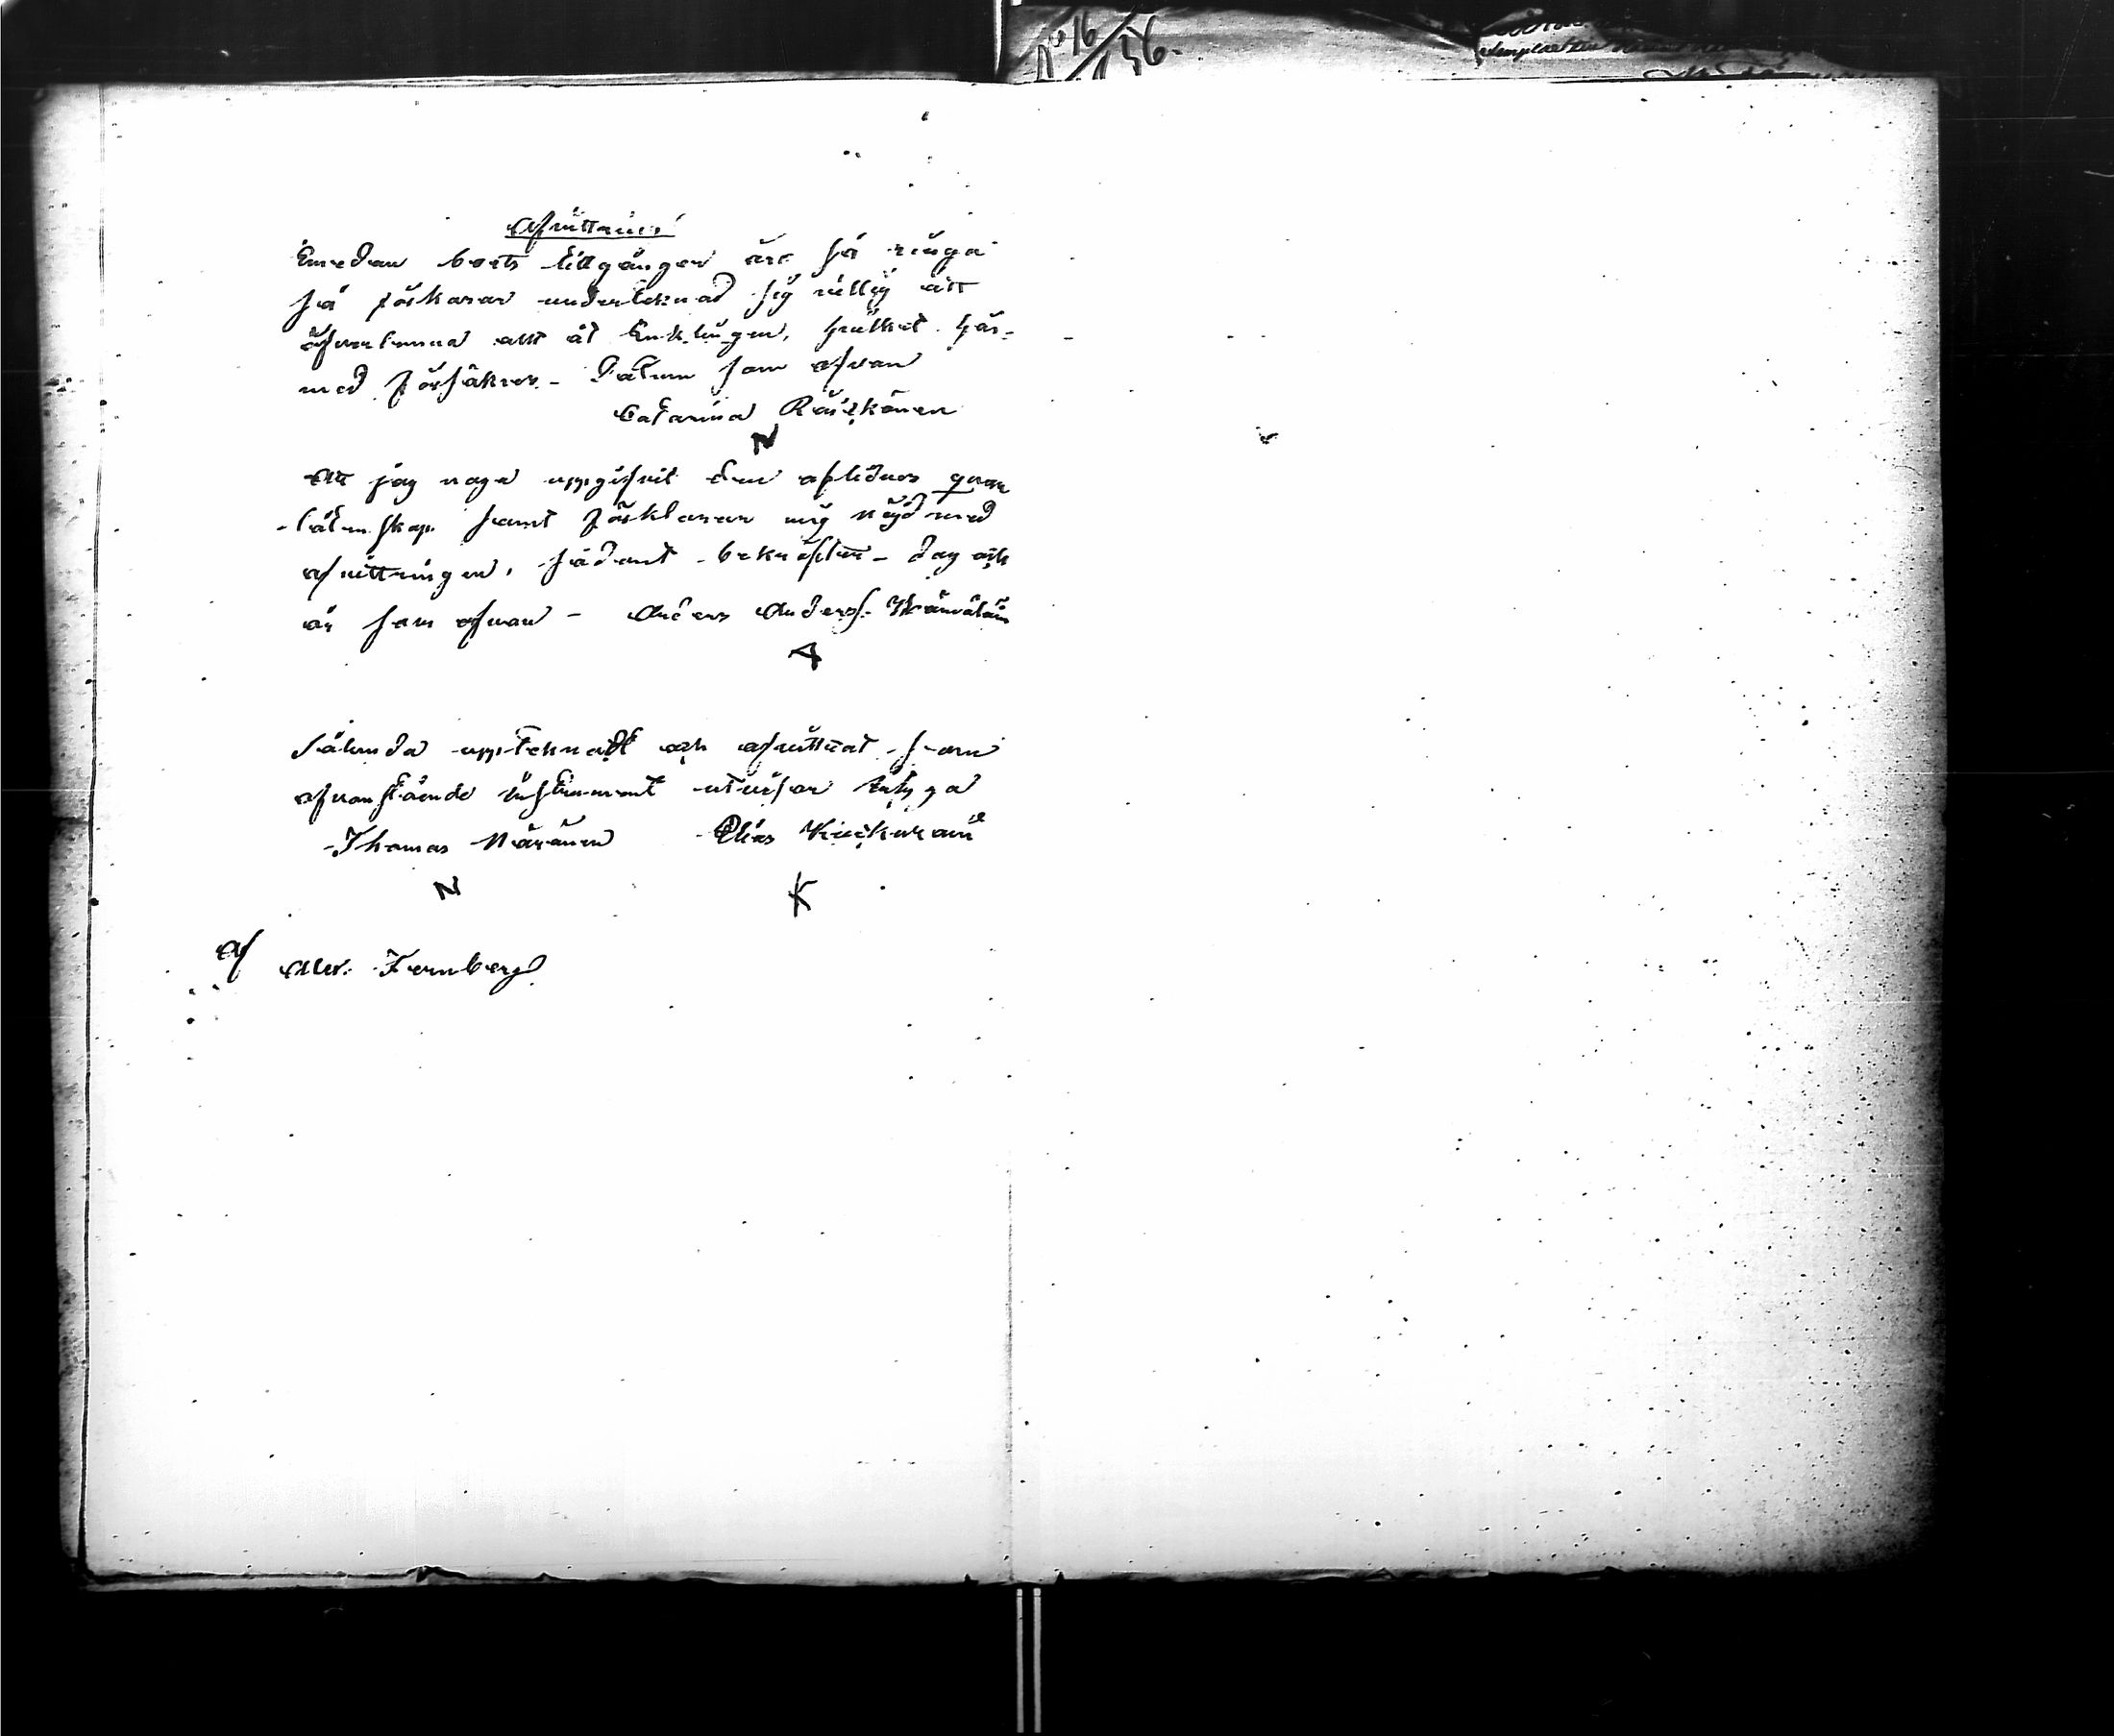 No 16/156.
Afvittring
Emedan boets tillgångar äro så ringa
så förkarar underteknad sig villig att
öfverlemna allt åt Enklingen, hvilket här-
med försäkras - Datum som ofvan
Catarina Räiskönen
N
Att jag noga uppgifvit den aflidnes qvar
-låtenskap samt förklarar mig nöjd med
afvittringen, sådant bekräftar - dag och
år som ofvan - Anders Anders.
A
Sålunda uppteknadt och afvittrat som
ofvanstående instrument utvisar betyga
Thomas Näränen Elias
N K
Af
Alex. Fernberg